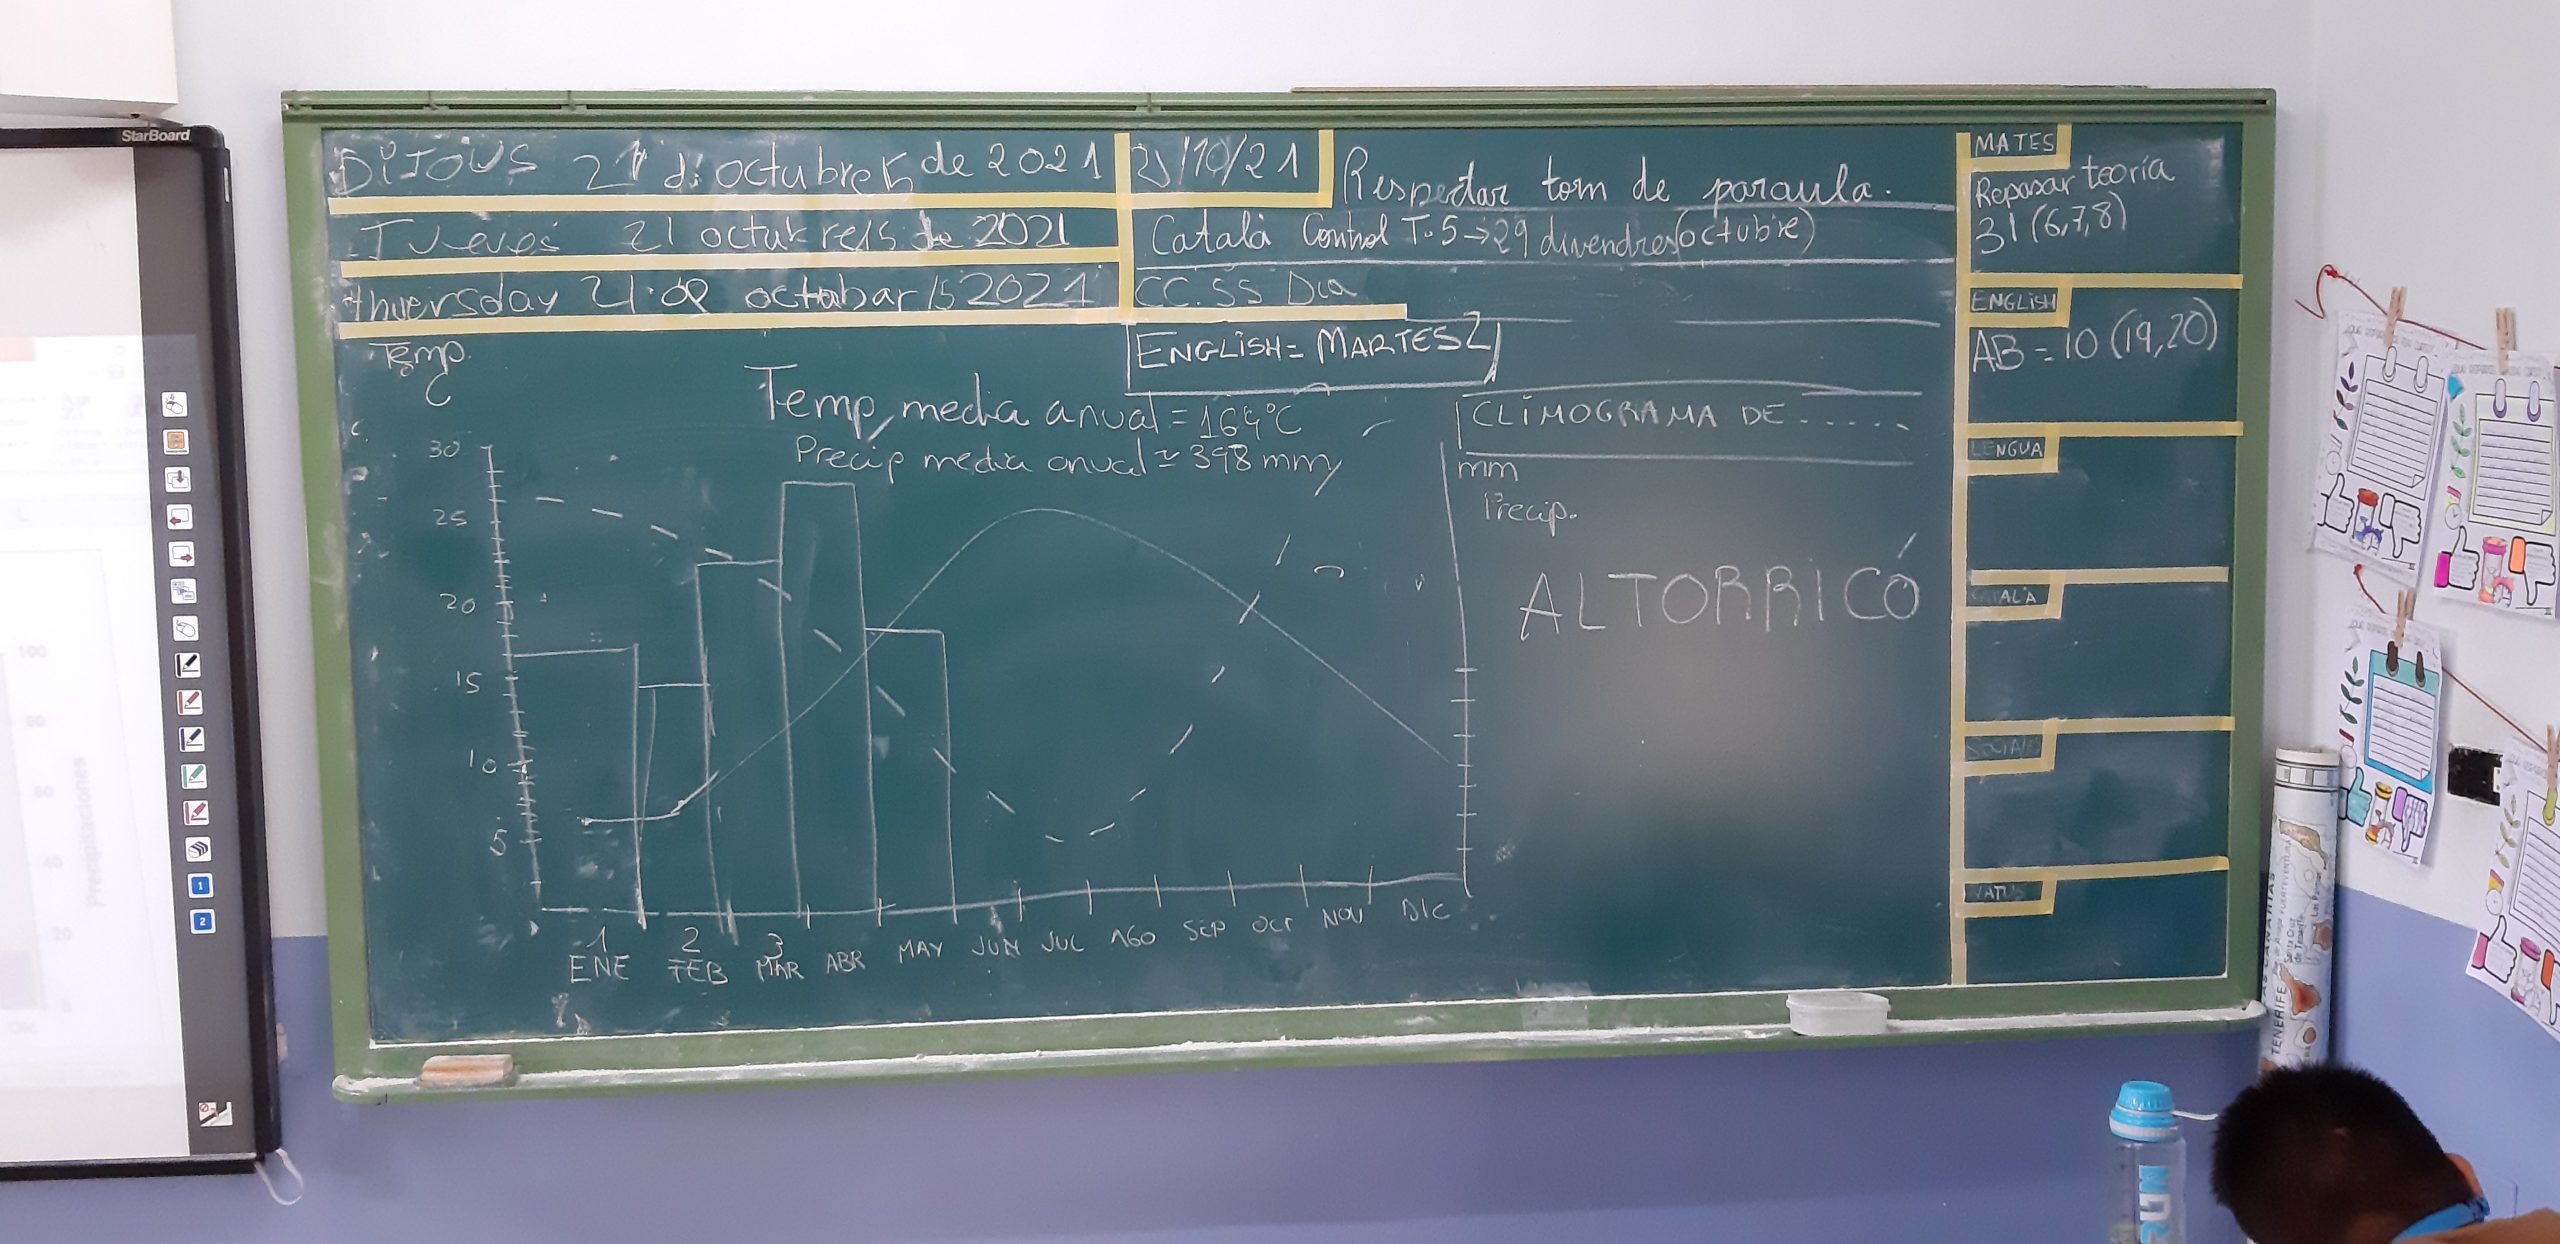 StarBoard
DiJOUS 21 d'octubre de 2021
21/10/21
Respectar torn de paraula.
Jueves 21 octubre de 2021
Català Control T.5 → 29 divendres (octubre)
thuersday 21 of octobar 2021
CC.SS Dia
ENGLISH = MARTES
Temp.
C
Temp media anual = 16'4°C
Precip media anual = 398 mm
CLIMOGRAMA DE ......
mm
Precip.
30
25
20
15
10
5
ALTORRICÓ
1 2 3
ENE FEB MAR ABR MAY JUN JUL AGO SEP OCT NOV DIC
MATES
Repasar teoría
31 (6,7,8)
ENGLISH
AB = 10 (19,20)
LENGUA
CATALÀ
SOCIALES
100
80
60
40
20
0
Precipitaciones
Dic
1
2
TENERIFE
RUN